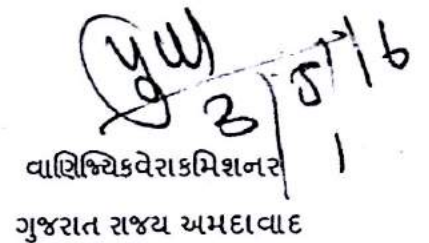 3/5/16
વાણિજ્યિકવેરાકમિશનર
ગુજરાત રાજય અમદાવાદ